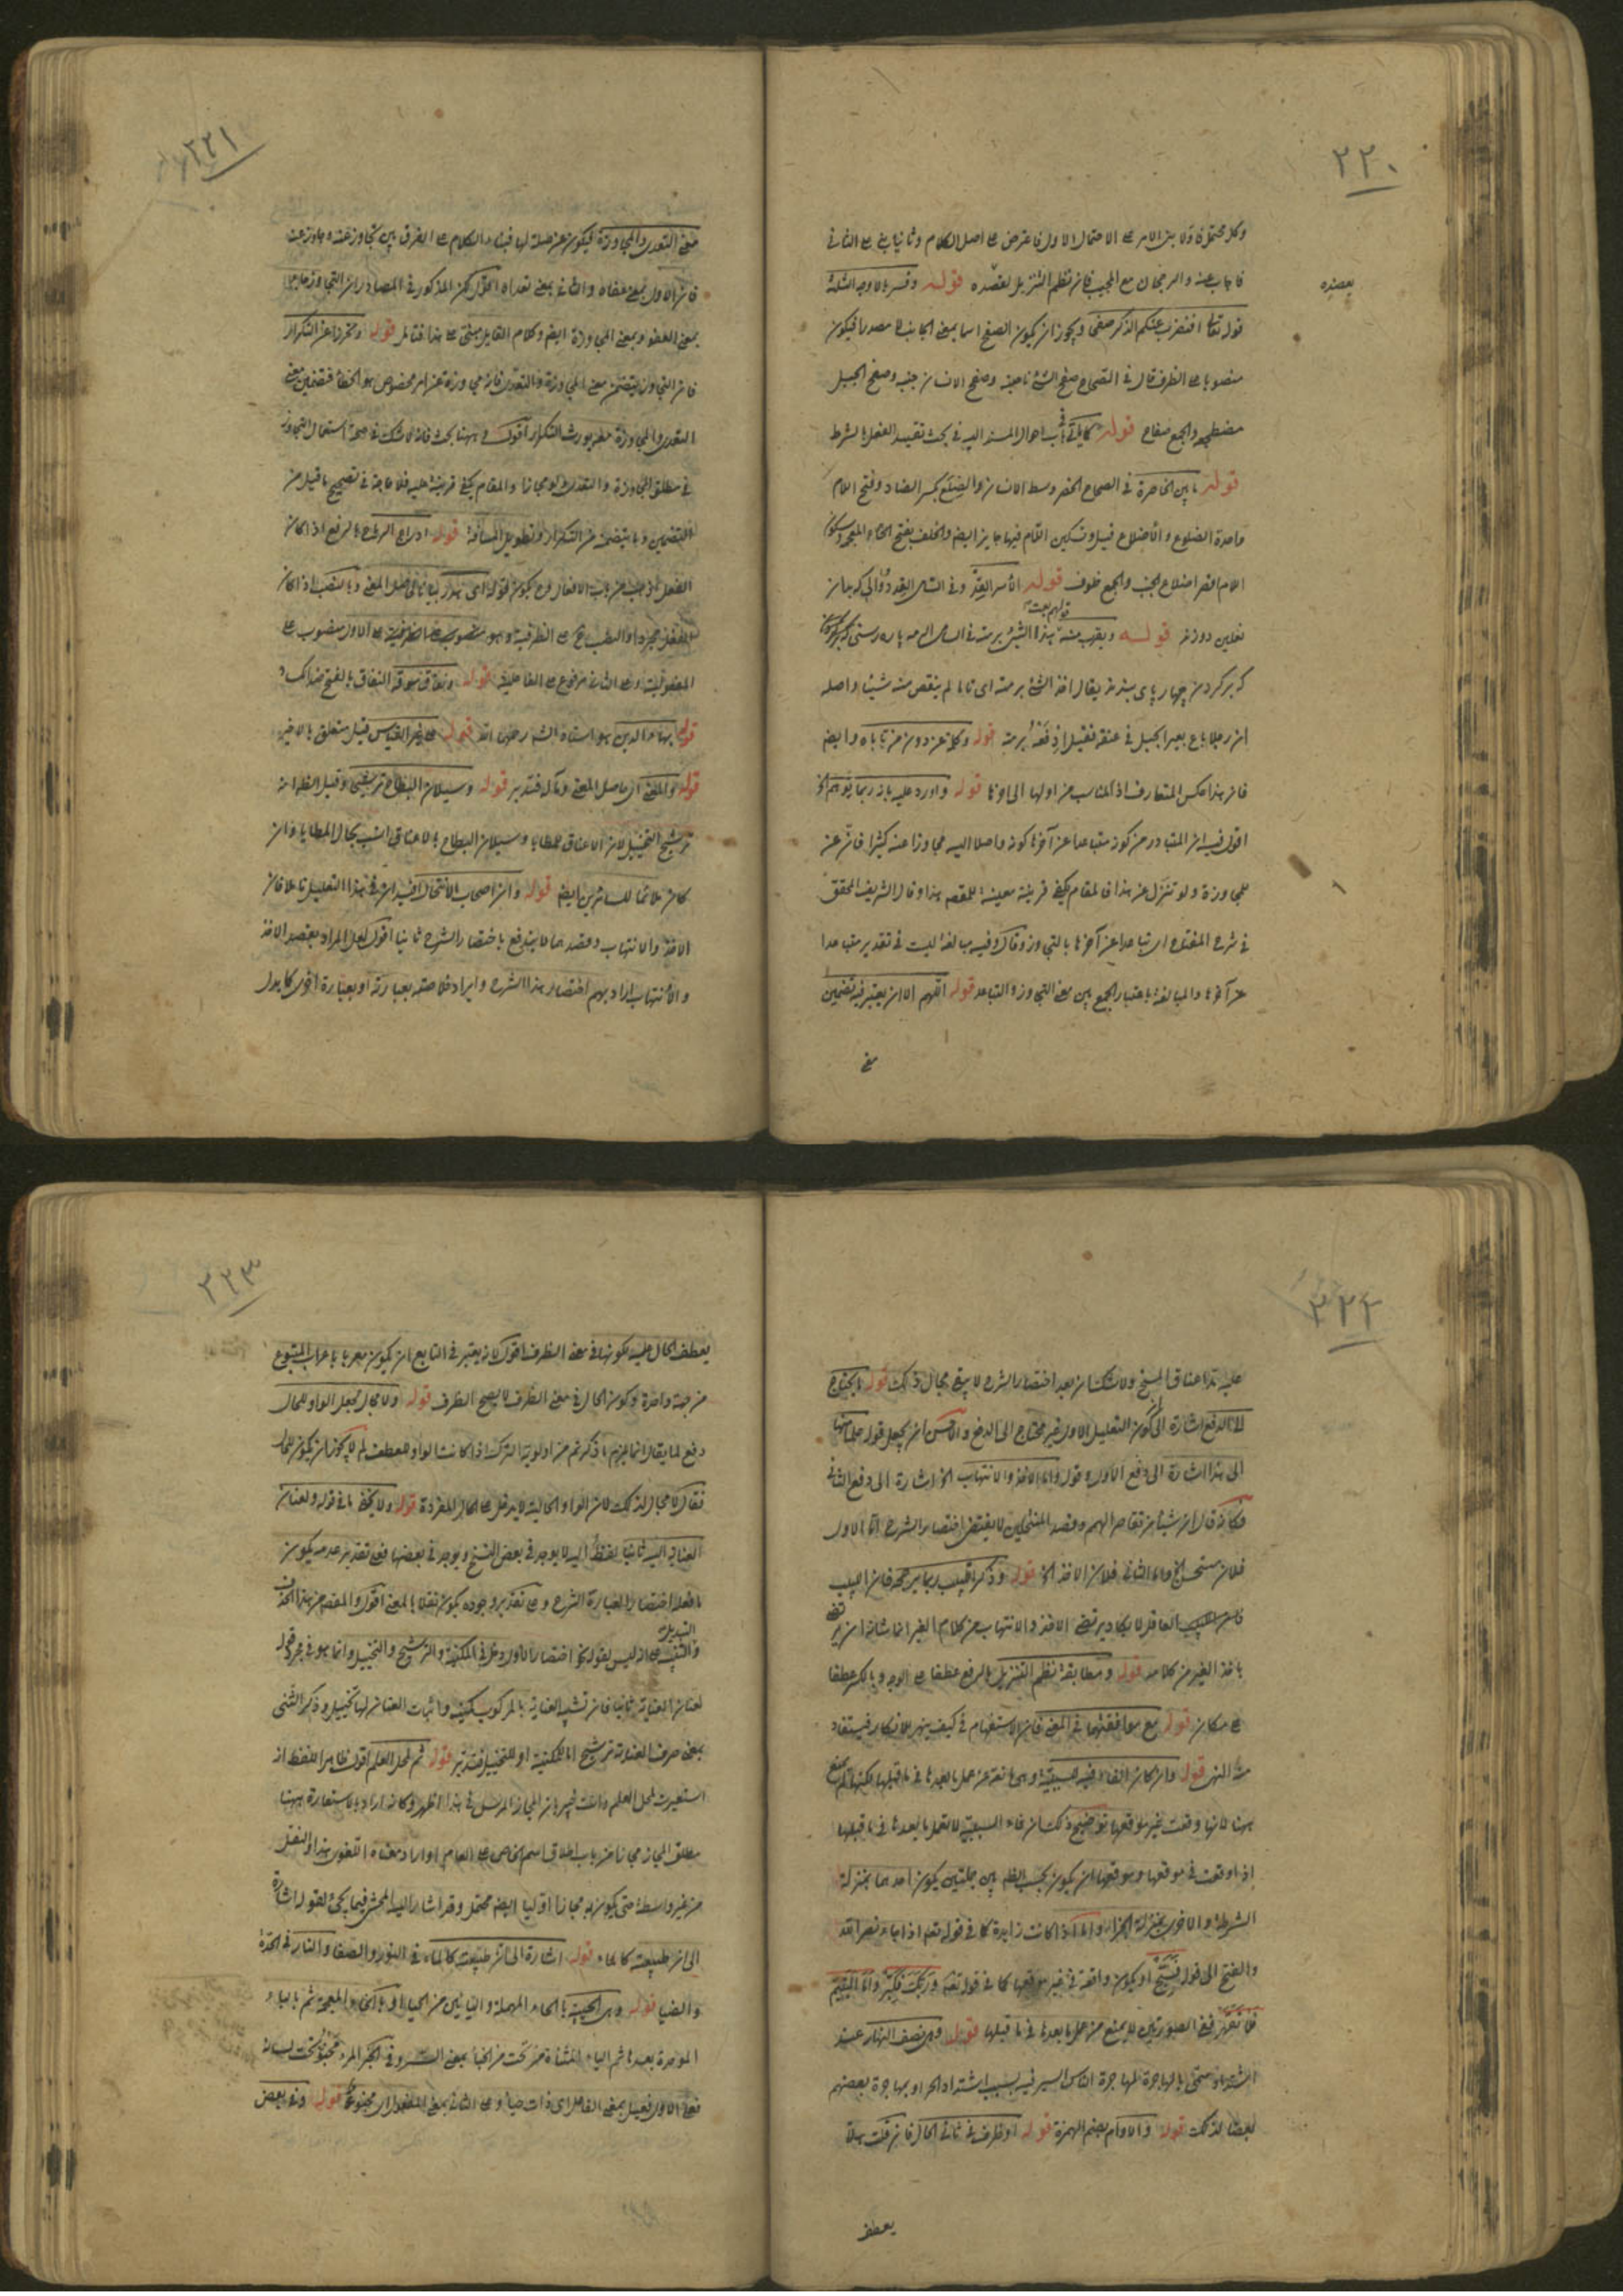 ٢٢٠
وكل محتمل فاولا بنى الامر على الاحتمال الاول فاعترض على اصل الكلام وثانيا بنى على الثاني
فاجاب عنه والرجحان مع المجيب فان نظم التنزيل يعضده قوله وفسر بالاوجه الثلثة
يعضده
قوله تعالى افنضرب عنكم الذكر صفحا ويجوز ان يكون الصفح اسما بمعنى الجانب لا مصدرا فيكون
منصوبا على الظرف قال في الصحاح صفح الشئ ناحيته وصفح الانسان جنبه وصفح الجبل
مضطجعه والجمع صفاح قوله كما يأتي في باب احوال المسند اليه في بحث تقييد الفعل بالشرط
قوله ما بين الخاصرة في الصحاح الخصر وسط الانسان والضلع بكسر الضاد وفتح اللام
واحدة الضلوع والاضلاع قيل وتسكين اللام فيها جايز ايضا والخلف بفتح الخاء المعجمة وسكون
اللام اقصر اضلاع الجنب والجمع خلوف قوله الأسر القد وفي السامي القد دوالى كه بدان
نعلين دوزند قوله ويقرب منه قولهم بعت هذا الشئ برمته في السامي الرمة پاره رسنى
كه بر كردن چهارپاى بندند يقال اخذ الشئ برمته اى تاما لم ينقص منه شيئا واصله
ان رجلا باع بعيرا بحبل في عنقه فقيل ادفعه برمته قوله وكلمة عن دون من تاباه وايضا
فان هذا عكس المتعارف اذ المناسب من اولها الى اخرها قوله واورد عليه بانه ربما يتوهم الخ
اقول فيه ان المتبادر من كونه متباعدا عن آخرها كونه واصلا اليه مجاوزا عنه كثيرا فان عن
للمجاوزة ولو تنزل عن هذا فالمقام يكفي قرينة معينة للمقصد هذا وقال الشريف المحقق
في شرح المفتاح اى تباعدا عن آخرها بالتجاوز وقال وفيه مبالغة ليست في تقدير متباعدا
عن آخرها والمبالغة باعتبار الجمع بين معنى التجاوز والتباعد قوله اللهم الا ان يعتبر فيه تضمين
معنى
٢٢١
معنى التعدى والمجاوزة ليكون عن صلة لها فبناء الكلام على الفرق بين تجاوز عنه وجاوز عنه
فان الاول بمعنى عفاه والثاني بمعنى تعداه لكن المذكور في المصادر ان التجاوز جاء
بمعنى العفو وبمعنى المجاوزة ايضا وكلام القايل مبنى على هذا فتامل قوله وتحرزا عن التكرار
فان التجاوز يتضمن معنى المجاوزة والتعدى فانه مجاوزة عن امر مخصوص هو الخطأ فتضمين معنى
التعدى والمجاوزة يورث التكرار اقول وههنا بحث فانه لا شك في صحة استعمال التجاوز
في مطلق المجاوزة والتعدى ولو مجازا والمقام يكفي قرينة عليه فلا حاجة في تصحيح ما قيل من
التضمين وما يتضمنه من التكرار وتطويل المسافة قوله ادراج الرياح بالرفع اذا كان
الفعل اذهب من باب الافعال وح يكون قوله اى هدر بيانا لحاصل المعنى وبالنصب اذا كان
الفعل مجردا والنصب ح على الظرفية وهو منصوب على الظرفية وعلى الاول منصوب على
المفعولية وعلى الثاني مرفوع على الفاعلية قوله ونفاق سوقه النفاق بالفتح ضد الكساد
قوله بهاء الدين هو استاذ الشه رضوان الله قوله على غير القياس قيل متعلق بالاخير
قوله والمعنى اى حاصل المعنى ومآله فتدبر قوله وسيلان البطاح ترشيح وقيل الظاهر انه
ترشيح التخييل لان الاعناق للمطايا وسيلان البطاح بالاعناق انسب بحال المطايا وان
كان ملائما للسائرين ايضا قوله وان اصحاب الانتحال فيه ان في هذا التعليل تاملا فان
الاخذ والانتهاب وقصدهما لا يندفع باختصار الشرح ثانيا اقول لعل المراد بقصد الاخذ
والانتهاب ارادتهم اختصار هذا الشرح وايراد خلاصته بعبارته او بعبارة اخرى كما يدل
٢٢٢
عليه مد اعناق المسخ ولا شك ان بعد اختصار الشرح لا يبقى مجال ذلك قوله لا يحتاج
الا الدفع اشارة الى كون التعليل الاول غير محتاج الى الدفع والاحسن ان يجعل قوله
الى هذا اشارة الى دفع الاول وقوله واما الاخذ والانتهاب الخ اشارة الى دفع الثاني
فكانه قال ان شيئا من تقاصر الهمم وقصد المنتحلين لا يقتضى اختصار الشرح اما الاول
فلانه مستحسن الخ واما الثاني فلان الاخذ الخ قوله وذكر اللبيب ربما يرجحه فان اللبيب
فان اللبيب العاقل لا يكاد يرتضى الاخذ والانتهاب من كلام الغير انما شانه ان يرتضى
باخذ الغير من كلامه قوله ومطابقة نظم التنزيل بالرفع عطفا على الوجه وبالكسر عطفا
على مكان قوله مع موافقتهما في المعنى فان الاستفهام في كيف ينهر للانكار فيستفاد
منه النهى قوله وان كان الفاء فيه للسببية وهى مانعة عن عمل ما بعدها في ما قبلها لكنها لم تمنع
ههنا لانها وقعت غير موقعها توضيح ذلك ان فاء السببية لا تعمل ما بعدها في ما قبلها
اذا وقعت في موقعها وموقعها ان يكون بحسب الظاهر بين جملتين يكون احدهما بمنزلة
الشرط والاخرى بمنزلة الجزاء واما اذا كانت زايدة كما في قوله تعالى اذا جاء نصر الله
والفتح الى قوله فسبح او يكون واقعة في غير موقعها كما في قوله تعالى وربك فكبر واما اليتيم
فلا تقهر ففي الصورتين لا يمنع من عمل ما بعدها في ما قبلها قوله وهى نصف النهار عند
اشتداد الحر وسمى بالهاجرة لمهاجرة الناس السير فيه بسبب اشتداد الحر او بمهاجرة بعضهم
بعضا لذلك قوله والاوام بضم الهمزة قوله او ظرف في ثاني الحال فان قلت هلا
يعطف
٢٢٣
يعطف الحال عليه لكونها في معنى الظرف اقول لانه يعتبر في التابع ان يكون معربا باعراب المتبوع
من جهة واحدة وكون الحال في معنى الظرف لا يصحح الظرف قوله ولا مجال لجعل الواو للحال
دفع لما يقال انما يلزم ما ذكرتم من اولوية الترك اذا كانت الواو للعطف لم لا يجوز ان يكون للحال
فقال لا مجال لذلك لان الواو الحالية لا يدخل على الحال المفردة قوله ولا يخفى ما في قوله ولعنان
العناية اليه ثانيا لفظ اليه لا يوجد في بعض النسخ ويوجد في بعضها فعلى تقدير عدمه يكون
ما فعله اختصارا لعبارة الشرح وعلى تقدير وجوده يكون نقلا بالمعنى اقول والمقصد من هذا الحذف
والتبديل التنبيه على انه ليس لقوله نحو اختصار الاول دخل في المكنية والترشيح والتخييل وانما هو في مجرد قوله
لعنان العناية ثانيا فان تشبيه العناية بالمركوب مكنية واثبات العنان لها تخييل وذكر الثنى
بمعنى صرف العنان ترشيح اما للمكنية او للتخييل فتدبر قوله ثم لمحل العلم اقول ظاهر اللفظ انه
استعيرت لمحل العلم وانت خبير بان المجاز المرسل في هذا اظهر وكانه اراد بالاستعارة ههنا
مطلق المجاز مجازا من باب اطلاق اسم الخاص على العام او اراد معناه اللغوى هذا والنقل
من غير واسطة حتى يكون مجازا اوليا ايضا محتمل وقد اشار اليه المحشى فيما يجئ لقوله اشارة
الى ان طبيعته كالماء قوله اشارة الى ان طبيعته كالماء في النور والصفا والنار في الحدة
والضيا قوله وهى الحيية بالحاء المهملة واليائين من الحيا او بالخاء المعجمة ثم بالباء
الموحدة بعدها ثم الياء المثناة من تحت من الخبأ بمعنى الستر وفي الخبر المرء مخبو تحت لسانه
فعلى الاول فعيل بمعنى الفاعل اى ذات حياء وعلى الثاني بمعنى المفعول اى مخبوءة قوله وفي بعض